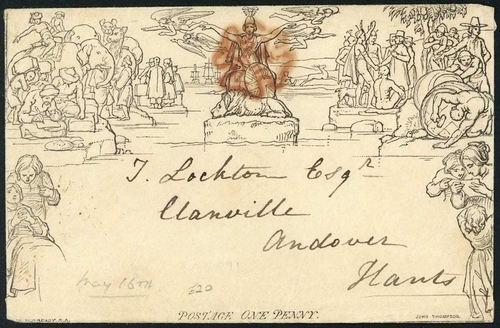 T. Lockton Esqr
Clanville
Andover
Hants
May 16th
£20
POSTAGE ONE PENNY.
JOHN THOMPSON.